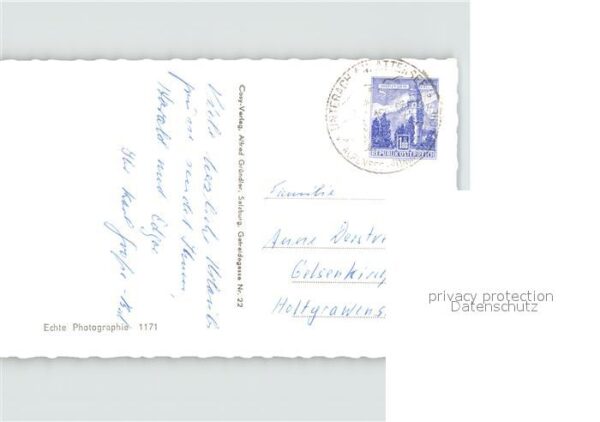 Viele herzliche Urlaubs
grüsse sendet Ihnen,
Harald und Edgar
Ihr Karl
Cosy-Verlag, Alfred Gründler, Salzburg, Getreidegasse Nr. 22
Echte Photographie 1171
UNTERACH AM ATTERSEE
REPUBLIK ÖSTERREICH
Familie
Anne
Gelsenkirch
Holtgrawens
privacy protection
Datenschutz